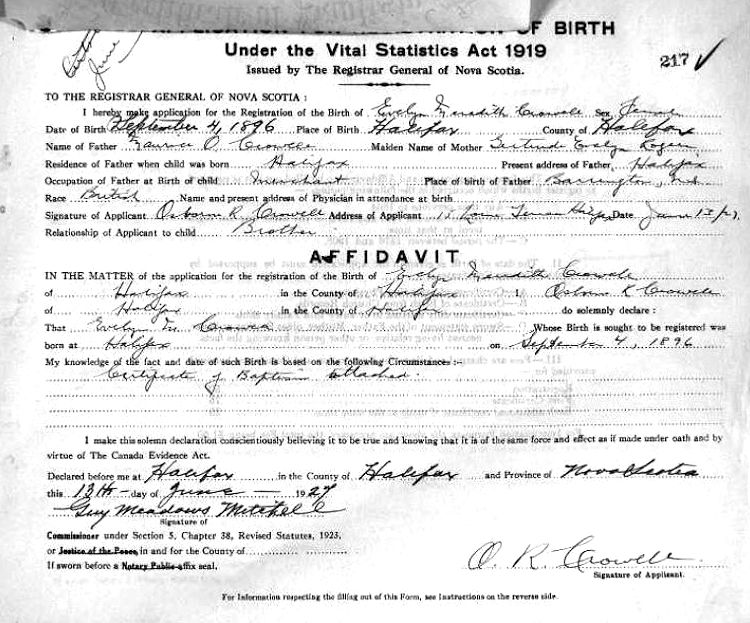 OF BIRTH
Under the Vital Statistics Act 1919
Issued by The Registrar General of Nova Scotia.
217
June
TO THE REGISTRAR GENERAL OF NOVA SCOTIA :
I hereby make application for the Registration of the Birth of Evelyn Meredith Crowell Sex Female
Date of Birth September 4, 1896 Place of Birth Halifax County of Halifax
Name of Father Maurice O. Crowell Maiden Name of Mother Gertrude Evelyn
Residence of Father when child was born Halifax Present address of Father, Halifax
Occupation of Father at Birth of child Merchant Place of birth of Father Barrington, N.S.
Race British Name and present address of Physician in attendance at birth
Signature of Applicant Osborn R. Crowell Address of Applicant 15 Date June 13/27
Relationship of Applicant to child Brother
AFFIDAVIT
IN THE MATTER of the application for the registration of the Birth of Evelyn Meredith Crowell
of Halifax in the County of Halifax I, Osborn R Crowell
of Halifax in the County of Halifax do solemnly declare :
That Evelyn M. Crowell Whose Birth is sought to be registered was
born at Halifax on September 4, 1896
My knowledge of the fact and date of such Birth is based on the following Circumstances :-
Certificate of Baptism attached.
I make this solemn declaration conscientiously believing it to be true and knowing that it is of the same force and effect as if made under oath and by
virtue of The Canada Evidence Act.
Declared before me at Halifax in the County of Halifax and Province of Nova Scotia
this 13th day of June 1927
Guy Meadows Mitchell
Signature of
Commissioner under Section 5, Chapter 38, Revised Statutes, 1923,
or Justice of the Peace, in and for the County of
If sworn before a Notary Public affix seal.
O. R. Crowell
Signature of Applicant.
For Information respecting the filling out of this Form, see Instructions on the reverse side.